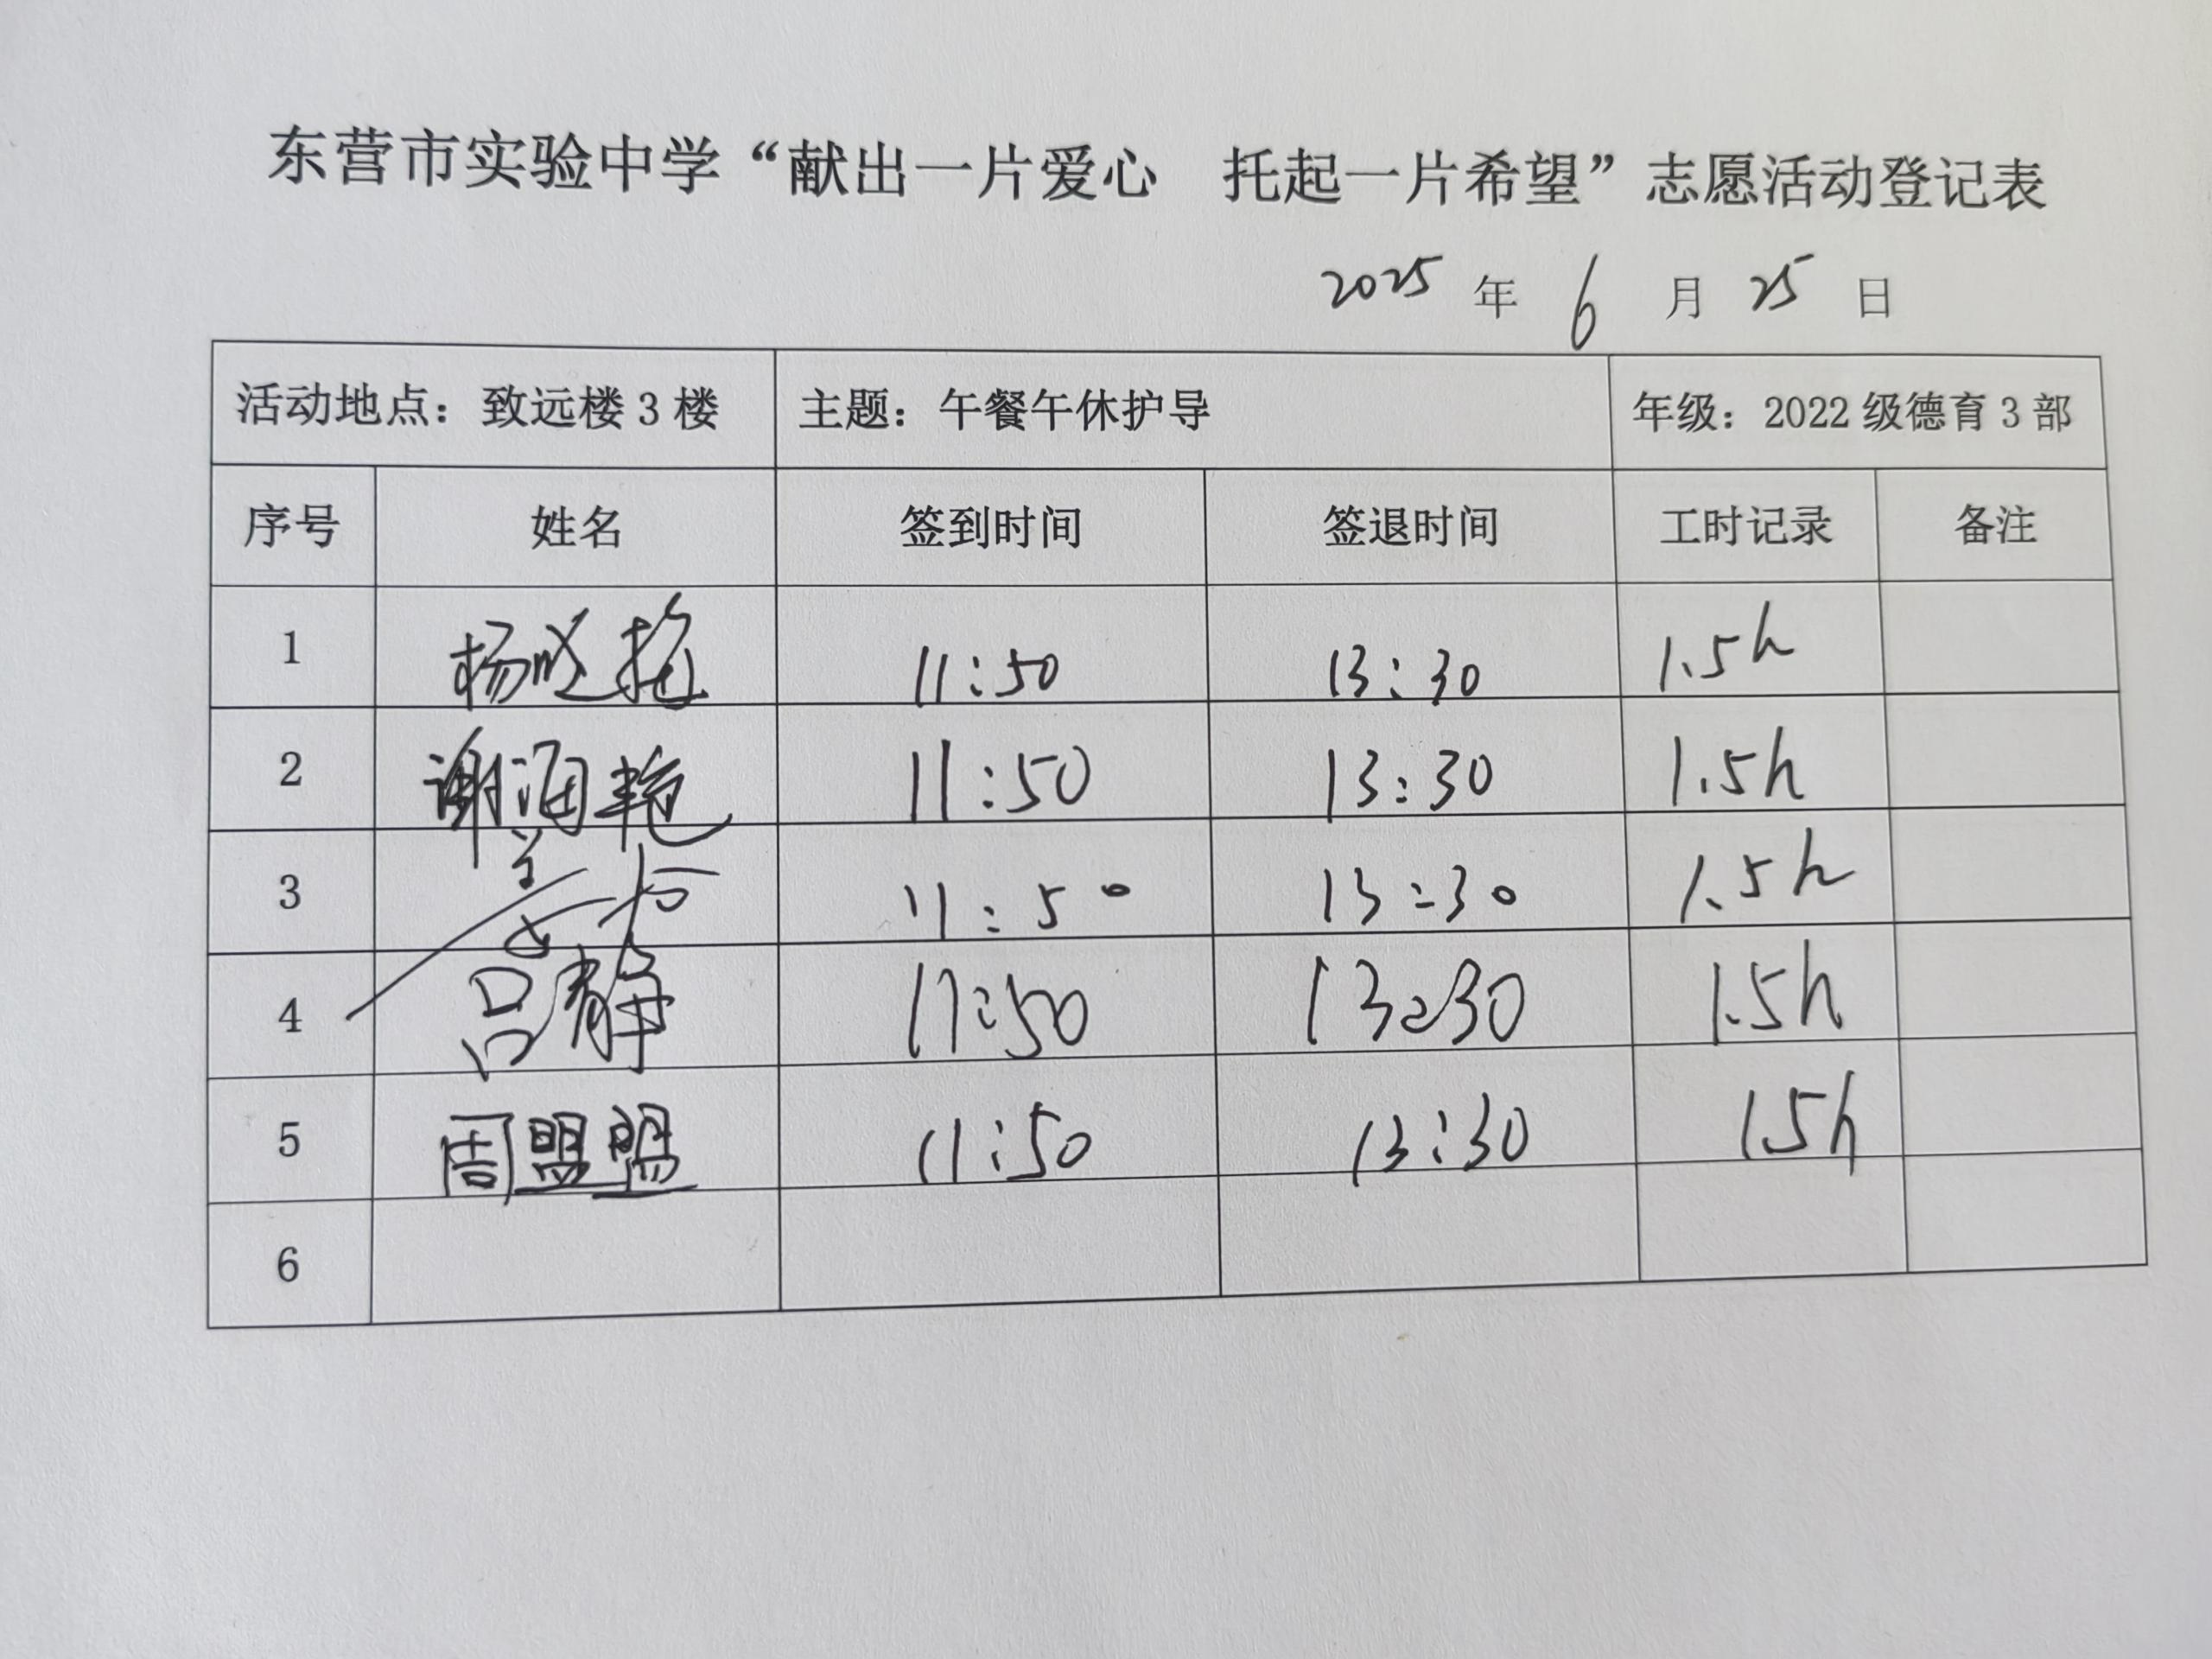 东营市实验中学“献出一片爱心 托起一片希望”志愿活动登记表
2025 年 6 月 25 日
活动地点：致远楼 3 楼 主题：午餐午休护导 年级：2022 级德育 3 部
序号 姓名 签到时间 签退时间 工时记录 备注
1 杨 11:50 13:30 1.5h
2 谢润艳 11:50 13:30 1.5h
3 11:50 13:30 1.5h
4 吕静 11:50 13:30 1.5h
5 周盟盟 11:50 13:30 1.5h
6